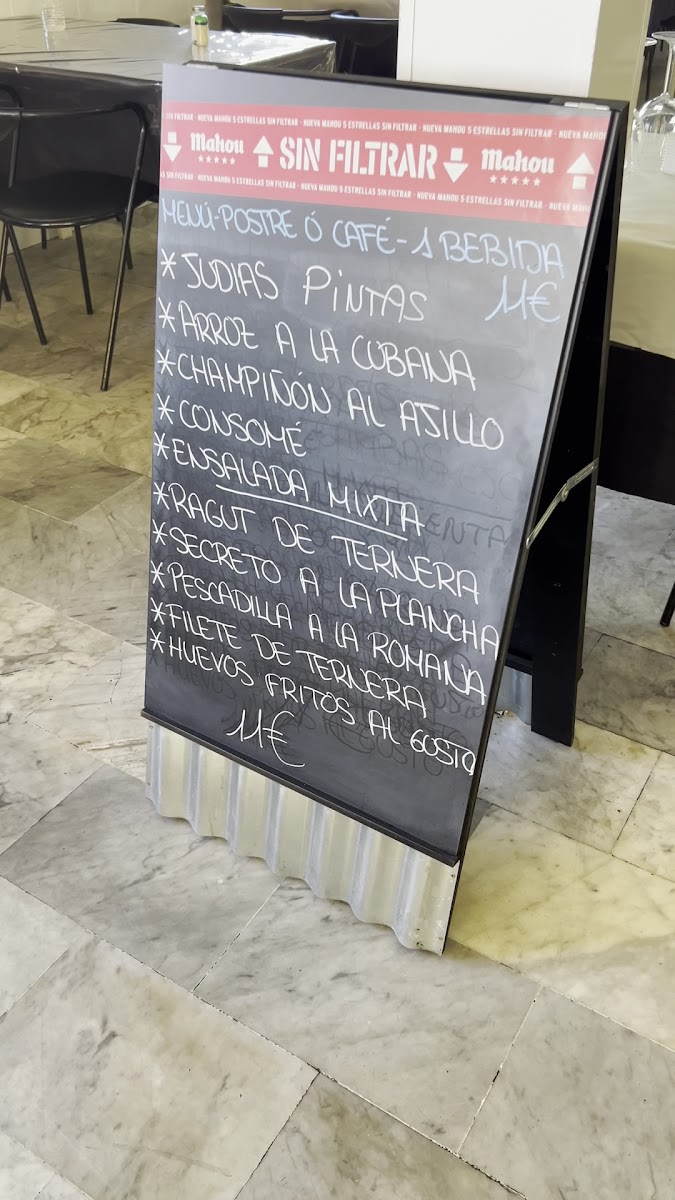 SIN FILTRAR - NUEVA MAHOU 5 ESTRELLAS SIN FILTRAR - NUEVA MAHOU 5 ESTRELLAS SIN FILTRAR - NUEVA MAHOU
Mahou SIN FILTRAR Mahou
AS SIN FILTRAR - NUEVA MAHOU 5 ESTRELLAS SIN FILTRAR - NUEVA MAHOU 5 ESTRELLAS SIN FILTRAR - NUEVA MAHOU 5 ESTRELLAS SIN FILTRAR - NUEVA MAH
MENÚ-POSTRE Ó CAFÉ-1 BEBIDA
11€
*JUDIAS PINTAS
*ARROZ A LA CUBANA
*CHAMPIÑÓN AL AJILLO
*CONSOMÉ
*ENSALADA MIXTA
*RAGUT DE TERNERA
*SECRETO A LA PLANCHA
*PESCADILLA A LA ROMANA
*FILETE DE TERNERA
*HUEVOS FRITOS AL GOSTO
11€